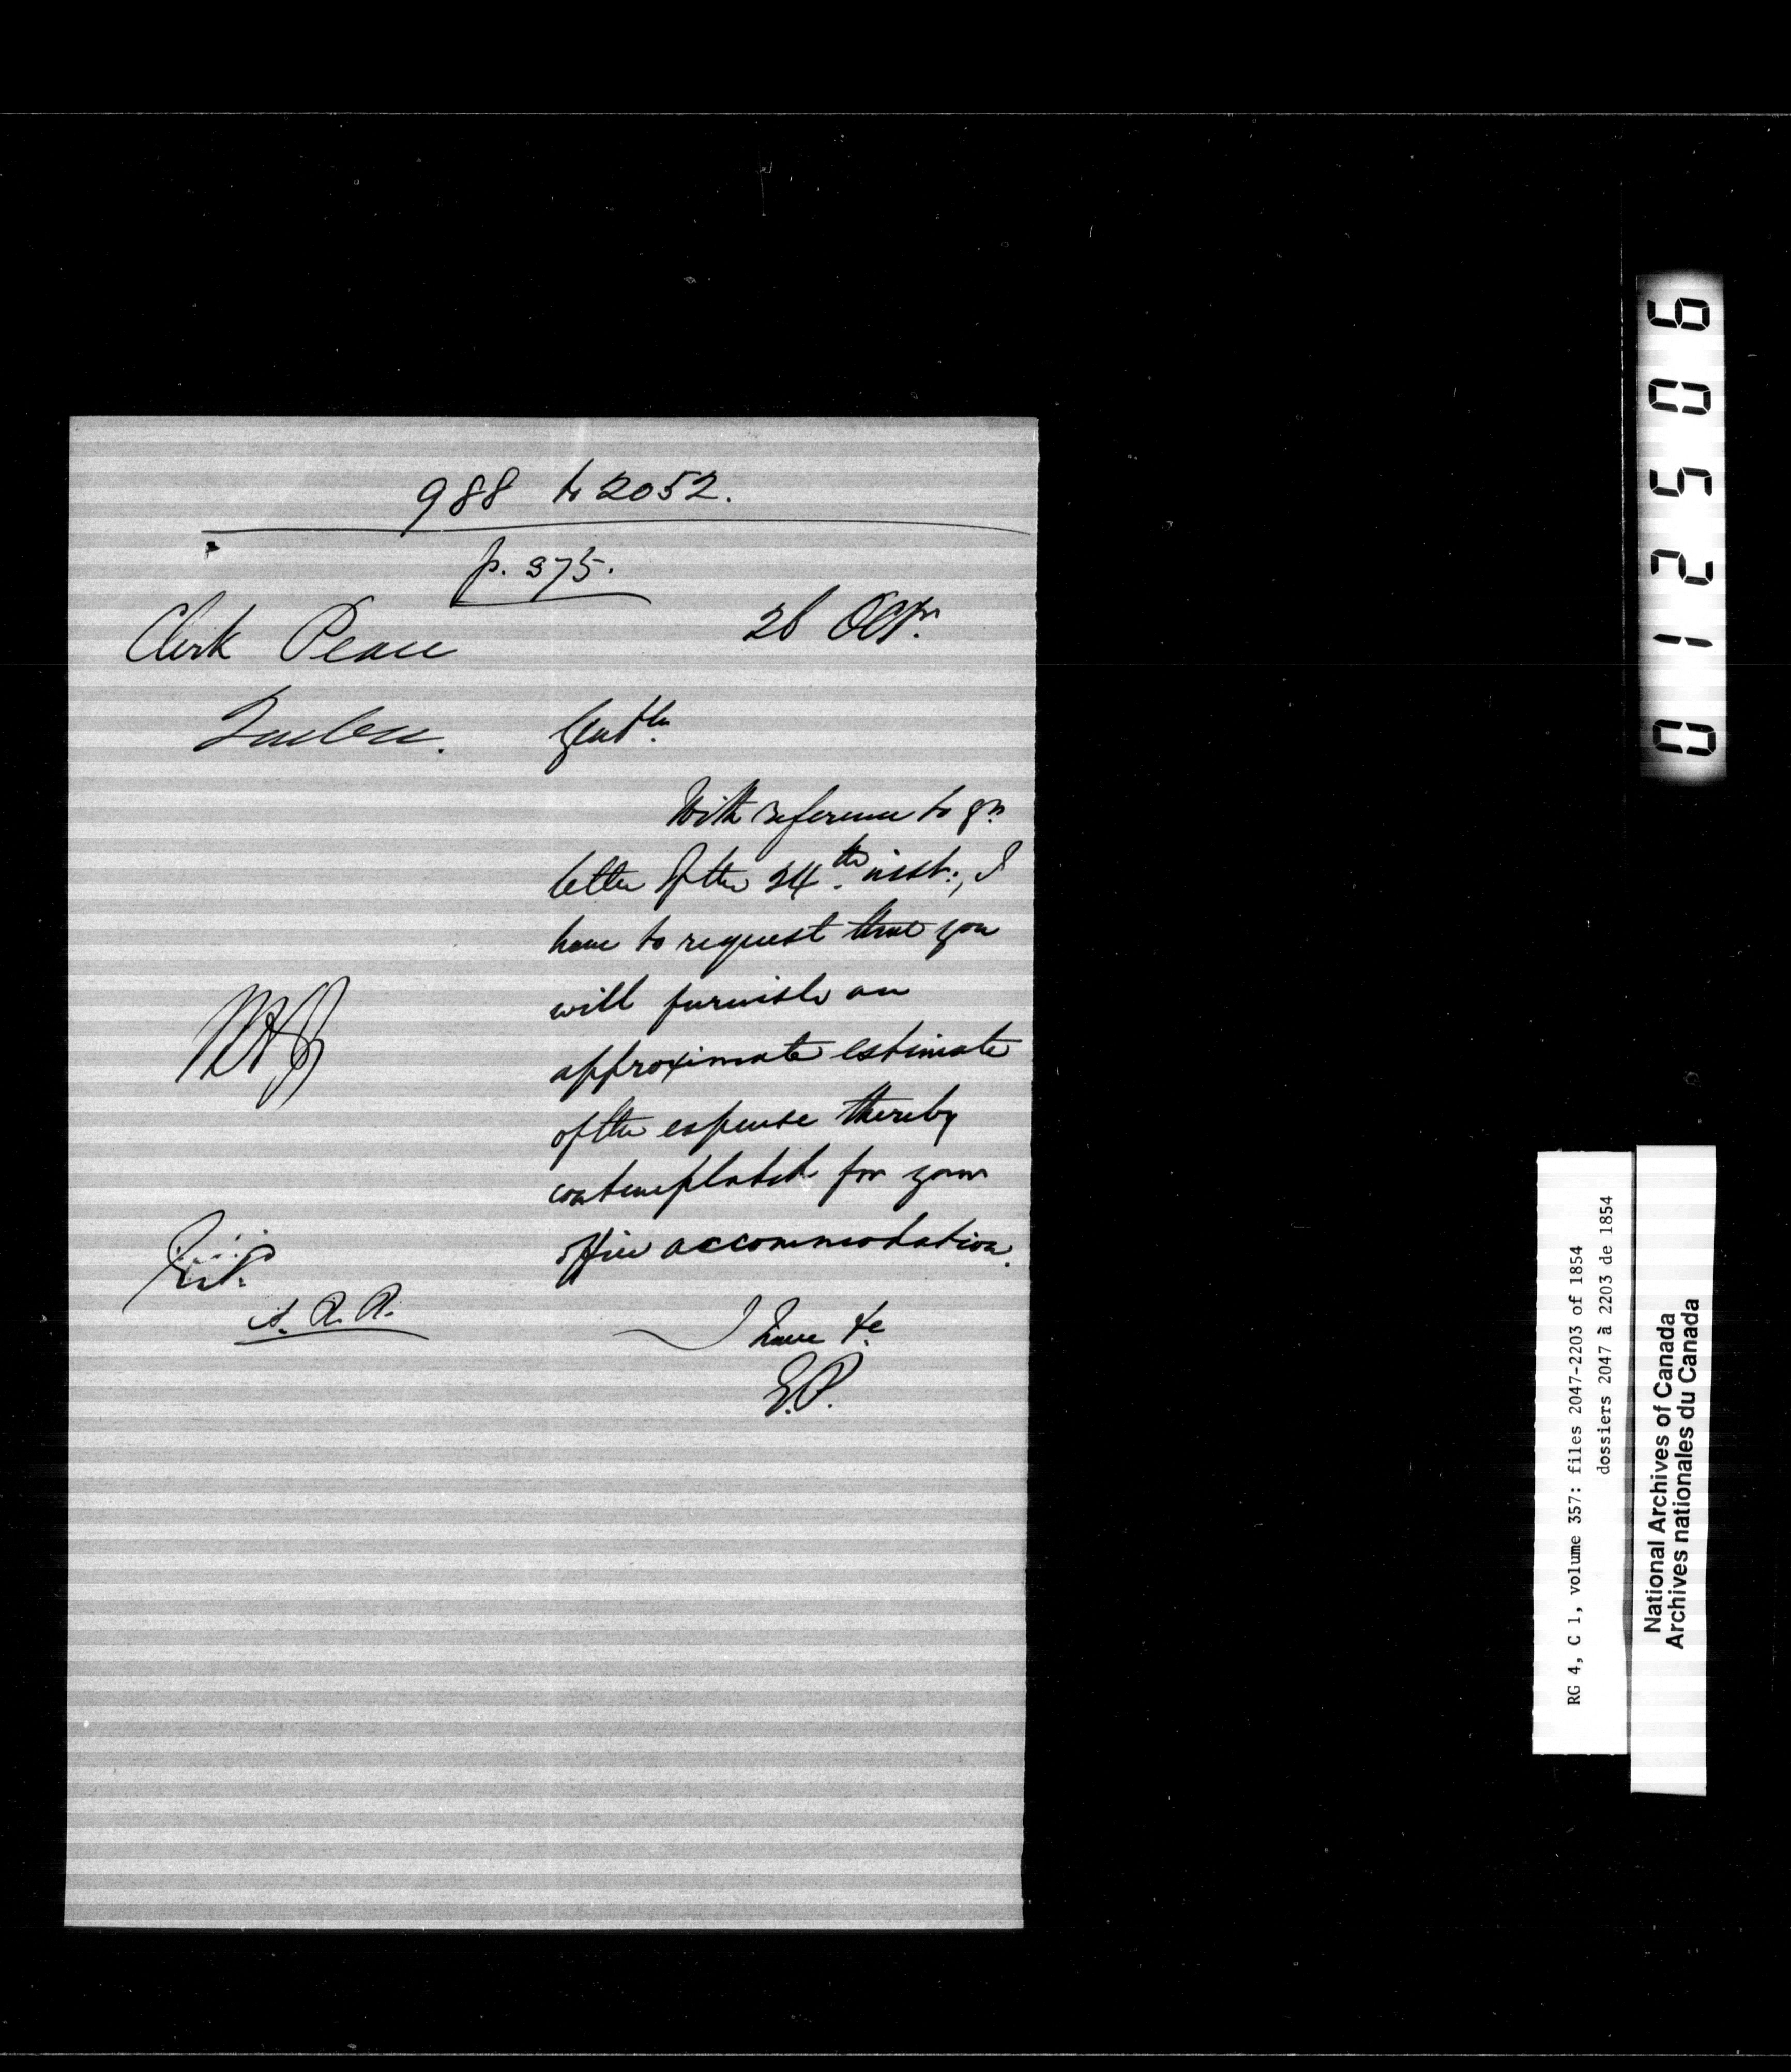 988 to 2052.
p. 375.
Clerk Peace
26 Octr.
Quebec.
Gentln.
With reference to yr.
letter of the 24th. inst:, I
have to request that you
will furnish an
approximate estimate
of the expense thereby
contemplated for your
office accommodation.
I have &c.
E.P.
A. R. R.
012506
RG 4, C 1, volume 357: files 2047-2203 of 1854
dossiers 2047 à 2203 de 1854
National Archives of Canada
Archives nationales du Canada